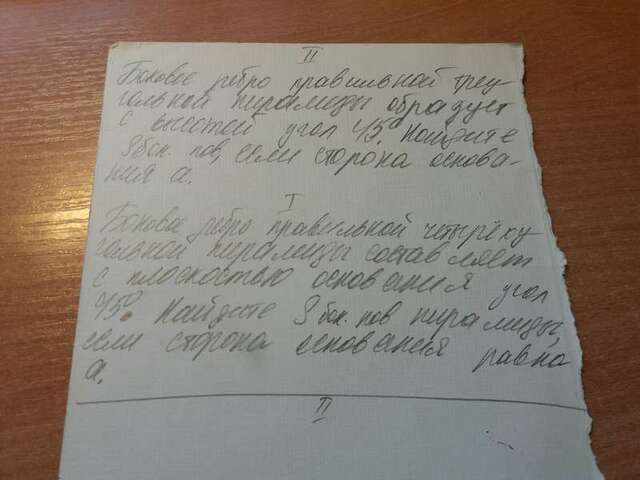 II
Боковое ребро правильной треу
гольной пирамиды образует
с высотой угол 45°. Найдите
Sбок. пов, если сторона основа-
ния a.
I
Боковое ребро правильной четырёху
гольной пирамиды составляет
с плоскостью основания угол
45°. Найдите Sбок. пов пирамиды,
если сторона основания равна
a.
II